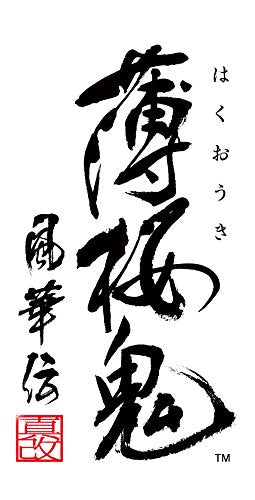 はくおうき
薄桜鬼
真改
風華伝
TM